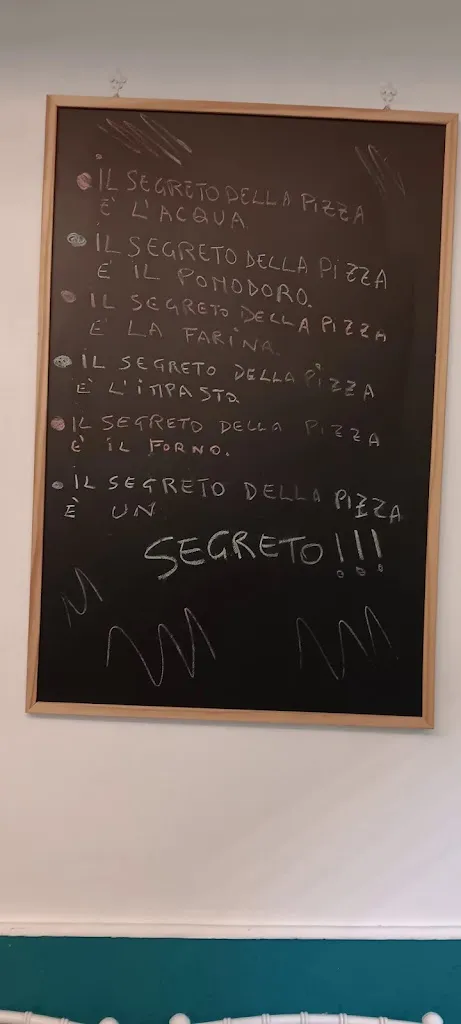 IL SEGRETO DELLA PIZZA
E' L'ACQUA
IL SEGRETO DELLA PIZZA
E' IL POMODORO.
IL SEGRETO DELLA PIZZA
E' LA FARINA.
IL SEGRETO DELLA PIZZA
E' L'IMPASTO
IL SEGRETO DELLA PIZZA
E' IL FORNO.
IL SEGRETO DELLA PIZZA
È UN
SEGRETO!!!